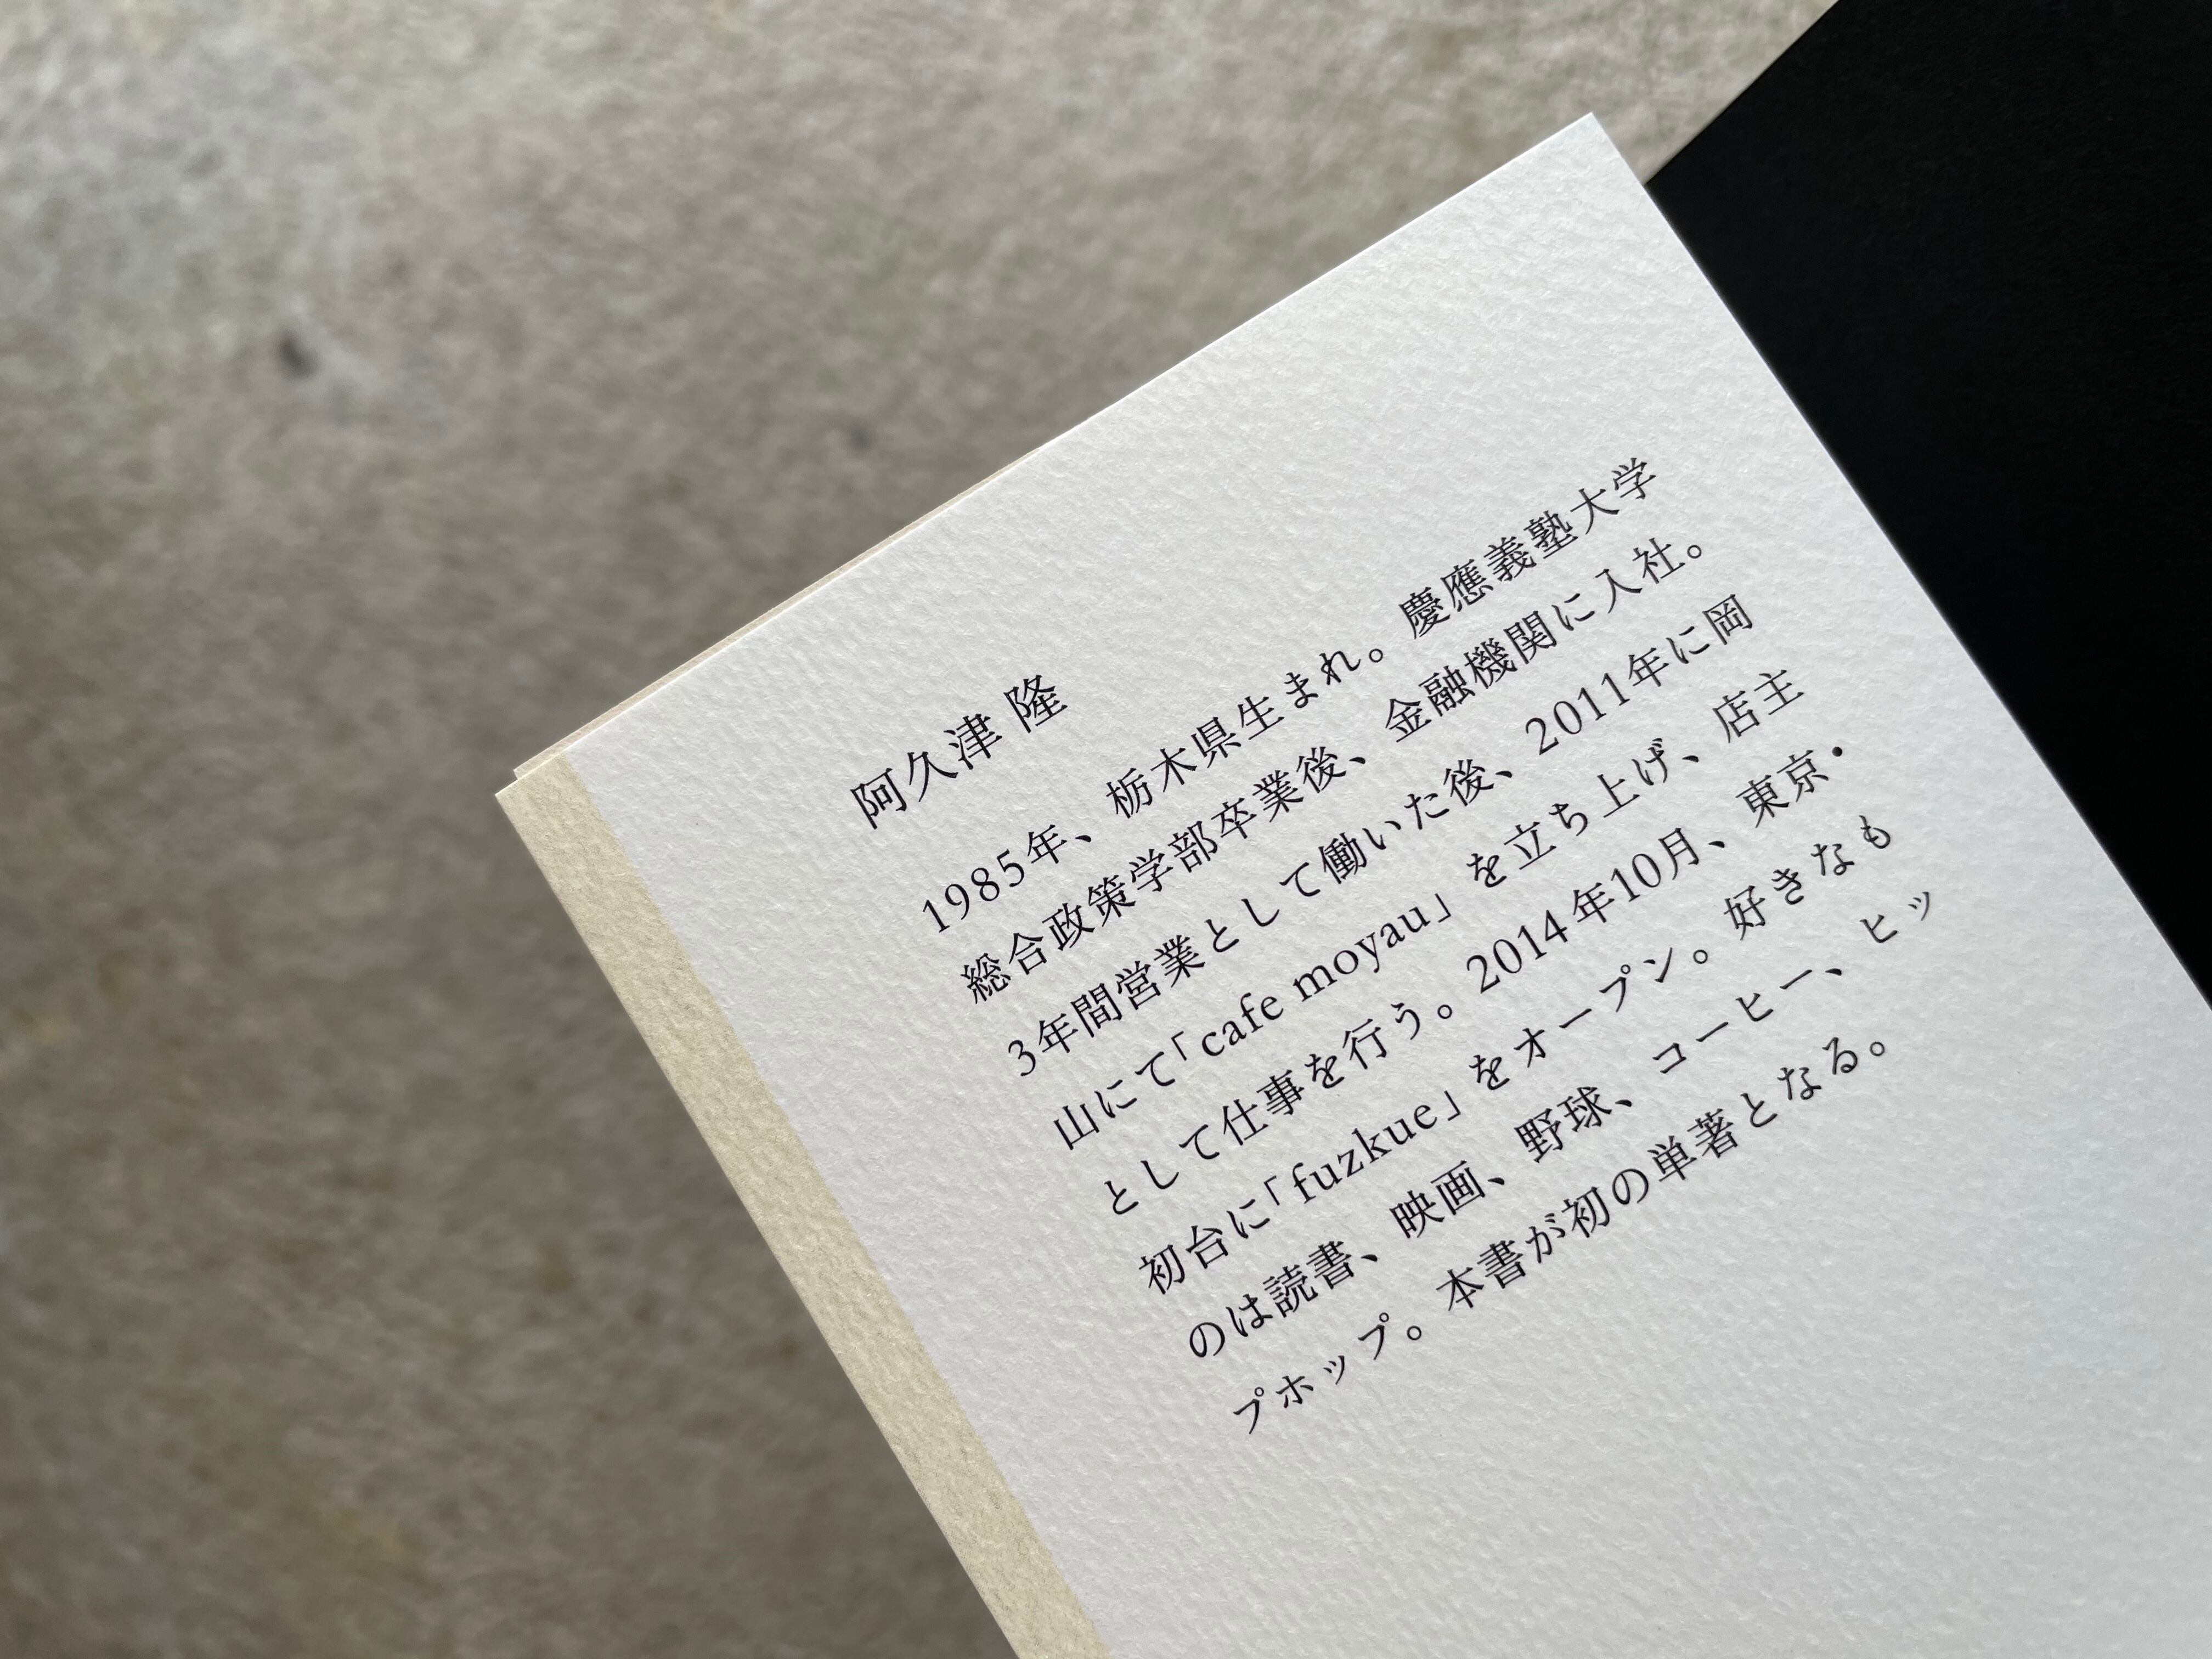 阿久津 隆
1985年、栃木県生まれ。慶應義塾大学
総合政策学部卒業後、金融機関に入社。
3年間営業として働いた後、2011年に岡
山にて「cafe moyau」を立ち上げ、店主
として仕事を行う。2014年10月、東京・
初台に「fuzkue」をオープン。好きなも
のは読書、映画、野球、コーヒー、ヒッ
プホップ。本書が初の単著となる。